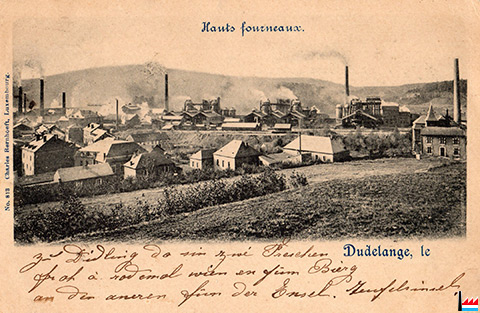 Hauts fourneaux.
No. 812 Charles Bernhoeft, Luxembourg.
Dudelange, le
zu Didling do sin zwé Preschen
a rodemal wien en fum Bierg
an den aneren fun der Ensel.